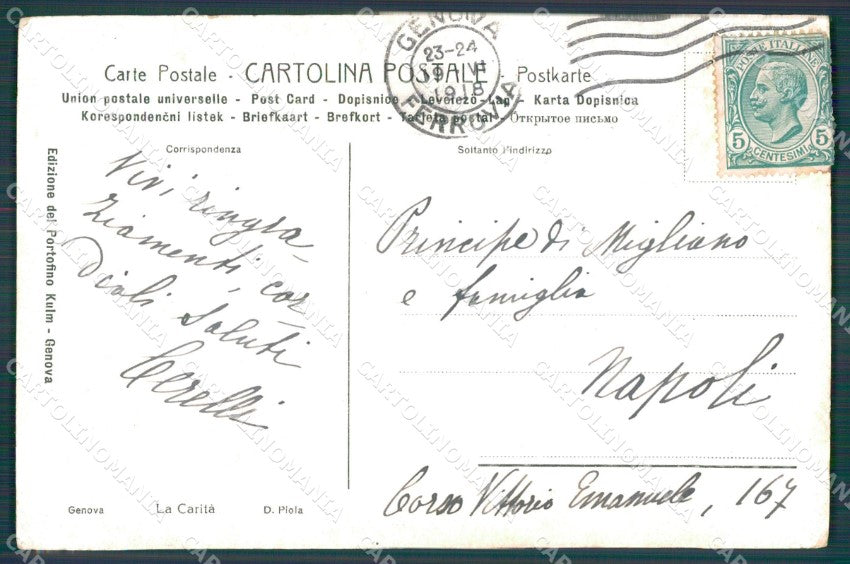 GENOVA
23-24
1918
FERROVIA
POSTE ITALIANE
5 5
CENTESIMI
Carte Postale - CARTOLINA POSTALE - Postkarte
Union postale universelle - Post Card - Dopisnice - Levelezö-Lap - Karta Dopisnica
Korespondenční listek - Briefkaart - Brefkort - Tarjeta postal - Открытое письмо
Corrispondenza
Soltanto l'indirizzo
Edizione del Portofino Kulm - Genova
Vivi ringra-
ziamenti, cor-
diali saluti
Cerelli
Principe di Migliano
e famiglia
Napoli
Corso Vittorio Emanuele, 167
Genova La Carità D. Piola
CARTOLINOMANIA